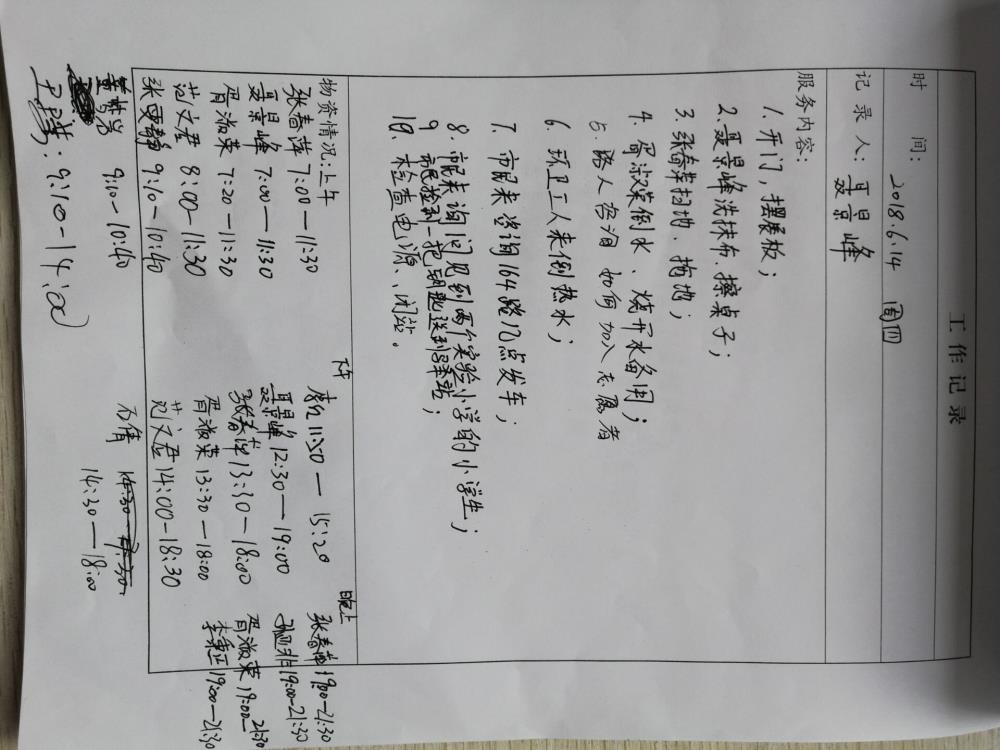 工作记录
时 间: 2018.6.14 周四
记录人: 聂景峰
服务内容:
1. 开门,摆展板;
2. 聂景峰洗抹布、擦桌子;
3. 张春萍扫地、拖地;
4. 胥淑荣倒水、烧开水备用;
5. 路人咨询如何加入志愿者
6. 环卫工人来倒热水;
7. 市民来咨询164路几点发车;
8. 市民来询问见到两个实验小学的小学生;
9 市民捡到一把钥匙送到驿站;
10. 检查电源、闭站。
物资情况:上午
张春萍 7:00—11:30
聂景峰 7:00—11:30
胥淑荣 7:20—11:30
范文君 8:00—11:30
张亚静 9:10-10:40
9:10-10:40
9:10-14:00
下午
11:50—15:20
聂景峰 12:30—19:00
张春萍 13:30-18:00
胥淑荣 13:30-18:00
范文君 14:00-18:30
石倩 14:30—18:00
晚上
张春萍 19:00-21:30
19:00-21:30
胥淑荣 19:00—21:30
李秉正 19:00—21:30